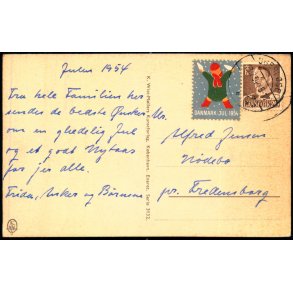 Julen 1954
Fra hele Familien her
sendes de bedste Ønsker
om en glædelig Jul
og et godt Nytaar
for jer alle.
Frida, Anker og Børnene
K. Witt-Møllers Kunstforlag, København. Eneret. Serie 3932.
DANMARK JUL 1954
DANMARK
Alfred Jensen
Nødebo
pr. Fredensborg